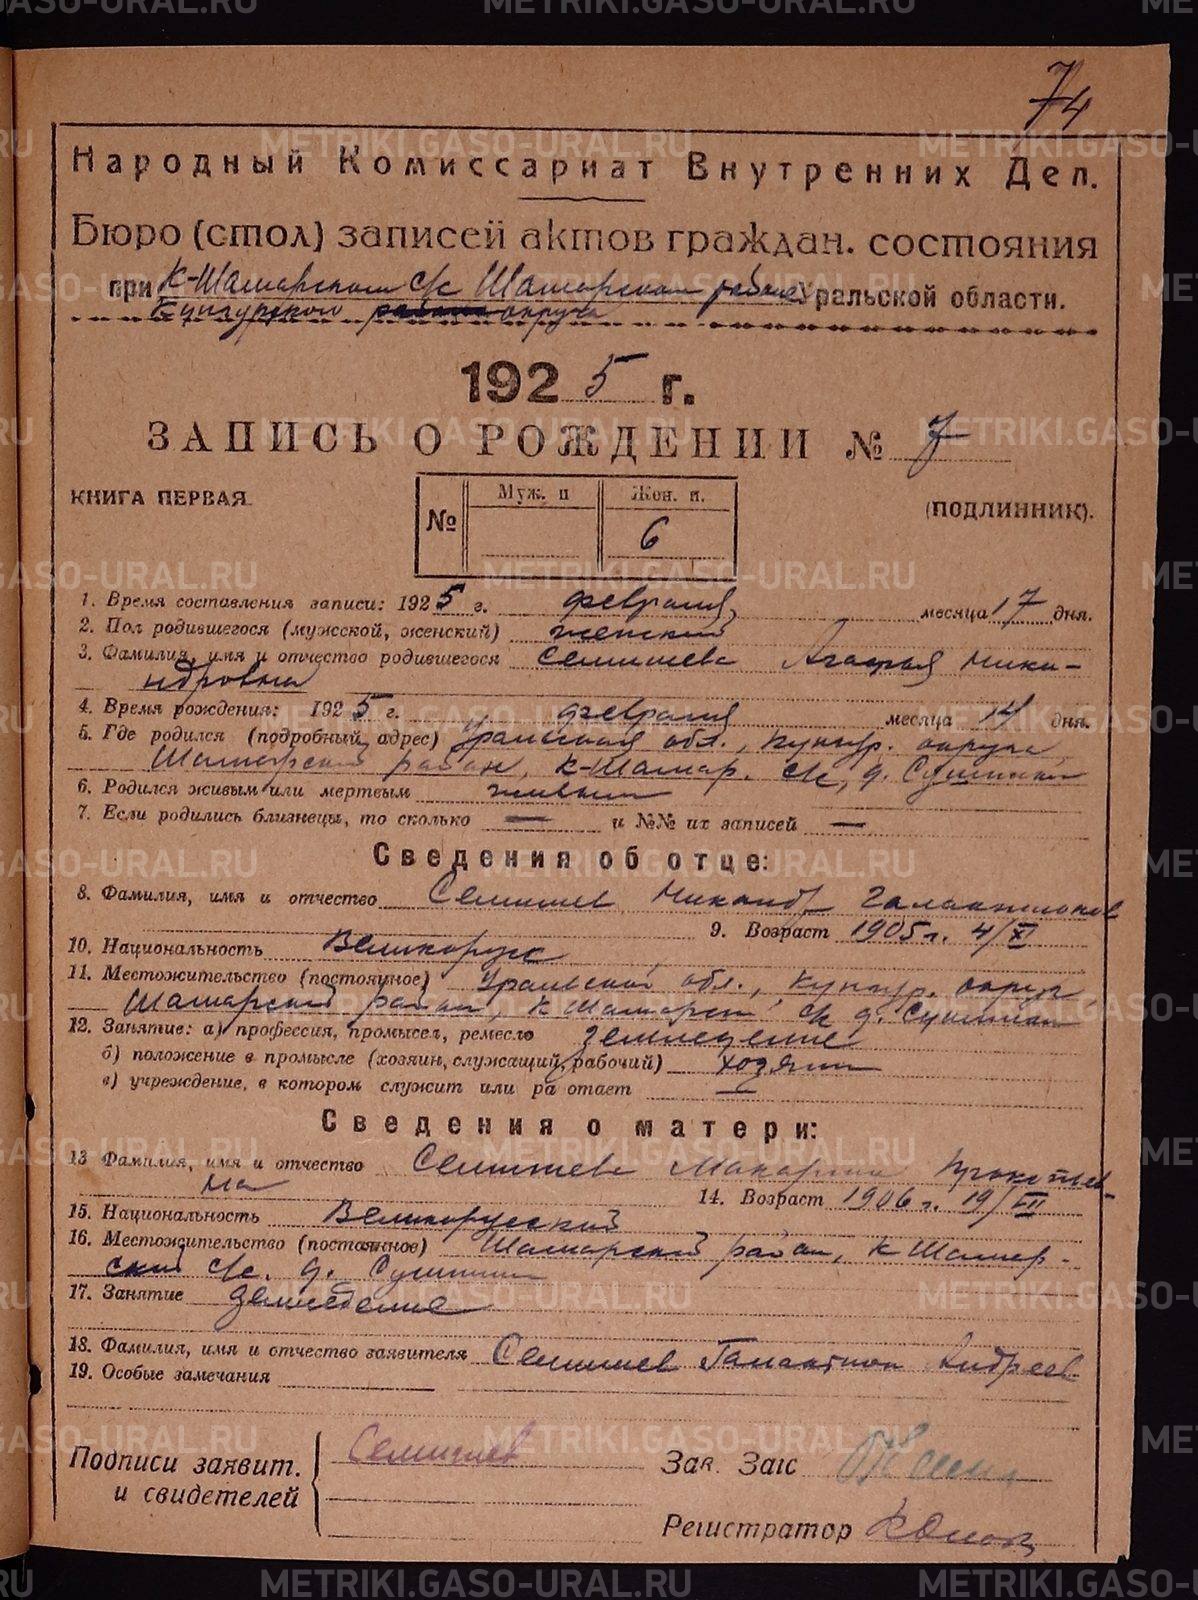 74
Народный Комиссариат Внутренних Дел.
Бюро (стол) записей актов граждан. состояния
при К-Шамарском с/с Шамарском районе Уральской области.
Кунгурского района округа
1925 г.
ЗАПИСЬ О РОЖДЕНИИ № 7
КНИГА ПЕРВАЯ.
№ Муж. п Жен. п.
6
(ПОДЛИННИК).
1. Время составления записи: 1925 г. февраля, месяца 17 дня.
2. Пол родившегося (мужской, женский) женский
3. Фамилия, имя и отчество родившегося Семишева Агафья Ника-
ндровна
4. Время рождения: 1925 г. февраля месяца 14 дня.
5. Где родился (подробный адрес) Уральская обл., Кунгур. округа,
Шамарский район, К-Шамар. с/с, д.
6. Родился живым или мертвым живым
7. Если родились близнецы, то сколько — и №№ их записей —
Сведения об отце:
8. Фамилия, имя и отчество Семишев Никандр Галактионов
9. Возраст 1905 г. 4/XI
10. Национальность Великорус
11. Местожительство (постоянное) Уральской обл., Кунгур. округ,
Шамарский район, К Шамарск с/с д.
12. Занятие: а) профессия, промысел, ремесло земледелие
б) положение в промысле (хозяин, служащий, рабочий) хозяин
в) учреждение, в котором служит или ра отает —
Сведения о матери:
13 Фамилия, имя и отчество Семишева Макария Прокопьев-
на
14. Возраст 1906 г. 19/VII
15. Национальность Великорусский
16. Местожительство (постоянное) Шамарский район, К Шамар-
ский с/с. д.
17. Занятие земледелие
18. Фамилия, имя и отчество заявителя Семишев Галактион Андреев
19. Особые замечания
Подписи заявит.
и свидетелей
Семишев
Зав. Загс
Регистратор
METRIKI.GASO-URAL.RU